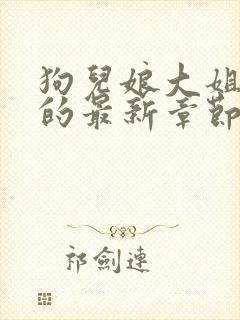 狗兒娘大姐
的最新章節
祁劍連